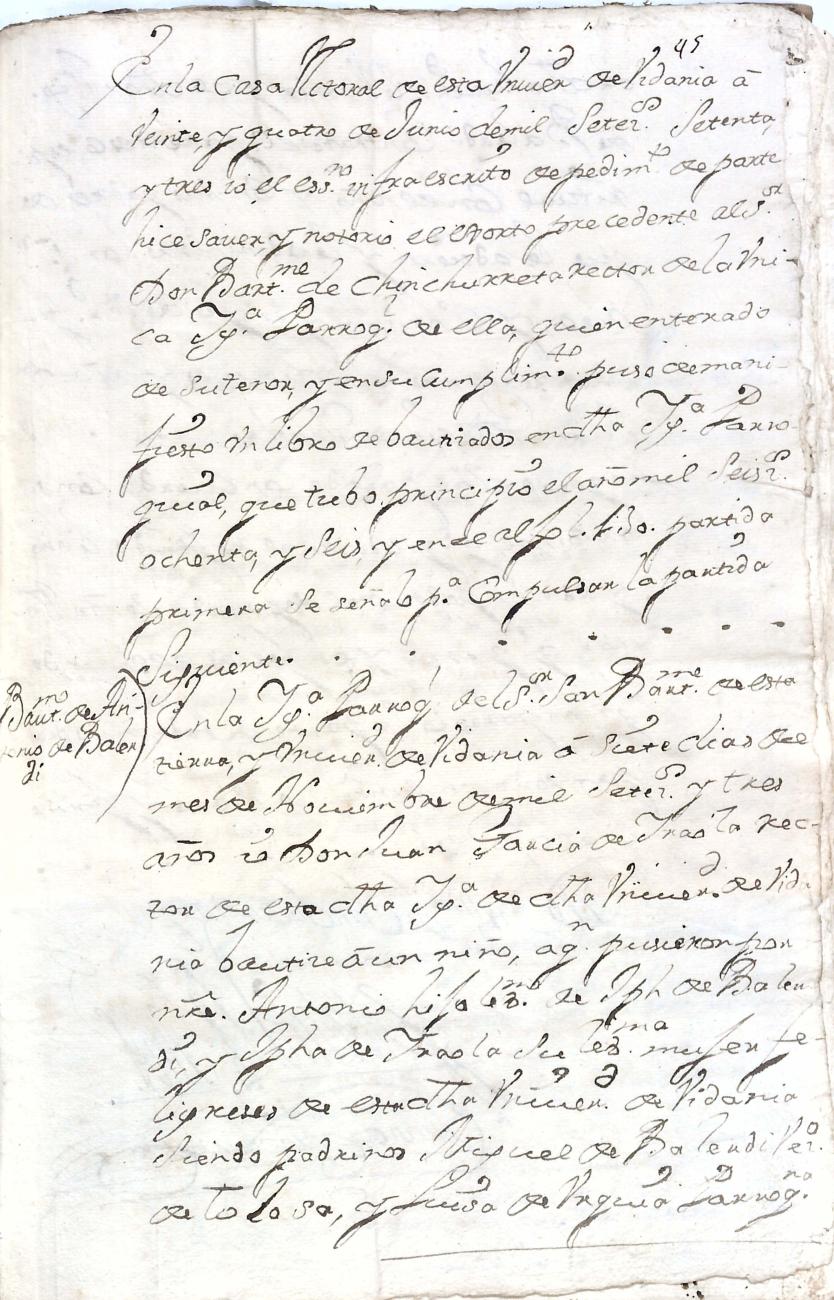 45
En la Casa Rectoral de esta Univerd. de Vidania â
veinte, y quatro de Junio de mil Seters. Setenta,
y tres io el essno. infraescrito de pedimto. de parte
hice saver, y notorio el exorto precedente al Sor.
Don Bartme. de Chinchurreta rector de la Uni-
ca Yga. Parroql. de ella, quien enterado
de su tenor, y en su Cumplimto. puso de mani-
fiesto un libro de bautizados en dtha Yga. Parro-
quial, que tubo principio el año mil Seiss.
ochenta, y Seis, y en ee al fol. 130. partida
primera se señalo pa. Compulsar la partida
Siguiente.
Bautmo. de An-
tonio de Balen
di
En la Yga. Parroql. del Sor. San Bartme. de esta
tierra, y Univerd. de Vidania â Siete dias de
mes de Noviembre de mil Seters. y tres
años io Don Juan Garcia de Traola rec-
tor de esta dtha Yga. de dtha Univerd. de Vida
nia bautize â un niño, a qn. pusieron por
nre. Antonio hijo legmo. de Jph de Balen
di, y Jpha de Traola su legma. mujer fe-
ligreses de esta dtha Univerd. de Vidania
siendo padrinos Miguel de Balendi Veo.
de tolosa, y Luisa de Urquia Parroqna.